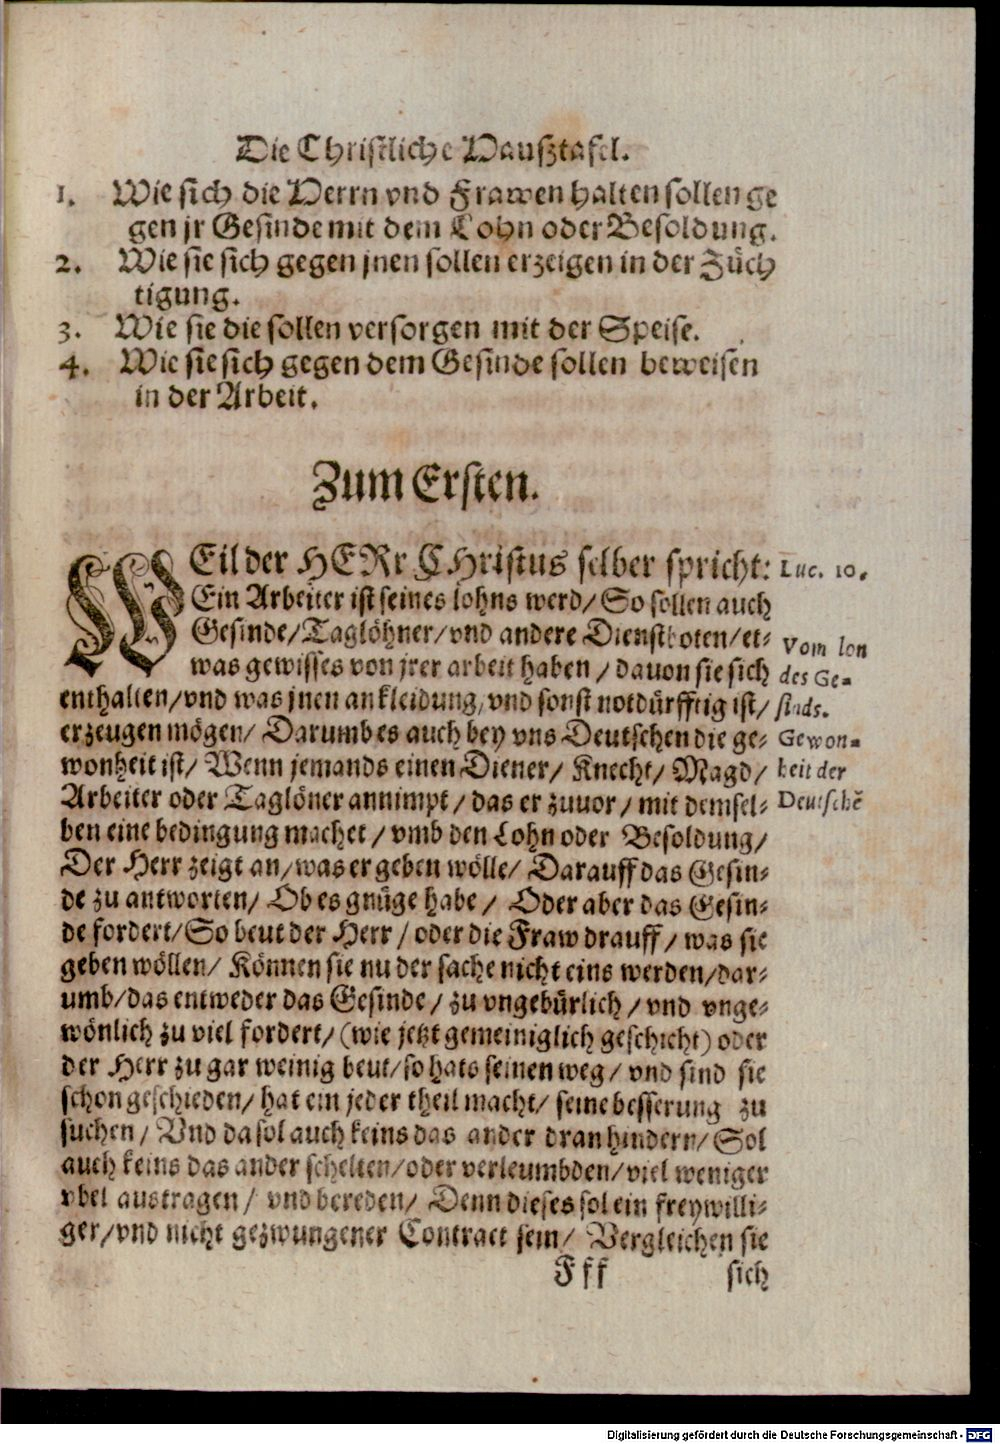 Die Christliche Haußtafel.
1. Wie sich die Herrn vnd Frawen halten sollen ge
gen jr Gesinde mit dem Lohn oder Besoldung.
2. Wie sie sich gegen jnen sollen erzeigen in der Züch
tigung.
3. Wie sie die sollen versorgen mit der Speise.
4. Wie sie sich gegen dem Gesinde sollen beweisen
in der Arbeit.
Zum Ersten.
WEil der HERr CHristus selber spricht: Luc. 10.
Ein Arbeiter ist seines lohns werd/ So sollen auch
Gesinde/ Taglöhner/ vnd andere Dienstboten/ et- Vom lon
was gewisses von jrer arbeit haben / dauon sie sich des Ge-
enthalten/ vnd was jnen an kleidung, vnd sonst notdürfftig ist/ sinds.
erzeugen mögen/ Darumb es auch bey vns Deutschen die ge- Gewon-
wonheit ist/ Wenn jemands einen Diener/ Knecht/ Magd/ heit der
Arbeiter oder Taglöner annimpt/ das er zuuor/ mit demsel- Deutschē
ben eine bedingung machet / vmb den Lohn oder Besoldung/
Der Herr zeigt an/ was er geben wölle/ Darauff das Gesin-
de zu antworten/ Ob es gnüge habe / Oder aber das Gesin-
de fordert/ So beut der Herr / oder die Fraw drauff/ was sie
geben wöllen/ Können sie nu der sache nicht eins werden/ dar-
umb/ das entweder das Gesinde / zu vngebürlich / vnd vnge-
wönlich zu viel fordert/ (wie jetzt gemeiniglich geschicht) oder
der Herr zu gar weinig beut/ so hats seinen weg/ vnd sind sie
schon geschieden/ hat ein jeder theil macht/ seine besserung zu
suchen / Vnd da sol auch keins das ander dran hindern/ Sol
auch keins das ander schelten/ oder verleumbden/ viel weniger
vbel austragen / vnd bereden/ Denn dieses sol ein freywilli-
ger/ vnd nicht gezwungener Contract sein/ Vergleichen sie
Fff sich
Digitalisierung gefördert durch die Deutsche Forschungsgemeinschaft - DFG